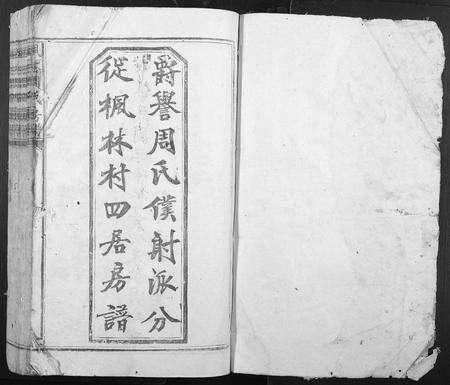 爵譽周氏僕射派分
從楓林村四居房譜